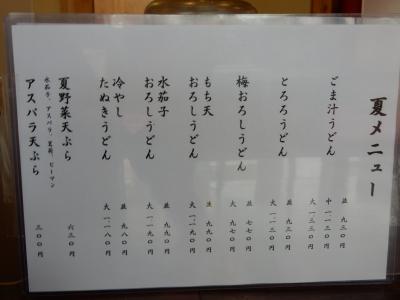 夏メニュー
ごま汁うどん
並 九三〇円
中 一一三〇円
大 一三三〇円
とろろうどん
並 九三〇円
大 一一三〇円
梅おろしうどん
並 七七〇円
大 九七〇円
もち天
おろしうどん
並 九九〇円
大 一一九〇円
水茄子
おろしうどん
並 九九〇円
大 一一九〇円
冷やし
たぬきうどん
並 九八〇円
大 一一八〇円
夏野菜天ぷら
六三〇円
水茄子、アスパラ、茗荷、ピーマン
アスパラ天ぷら
三〇〇円